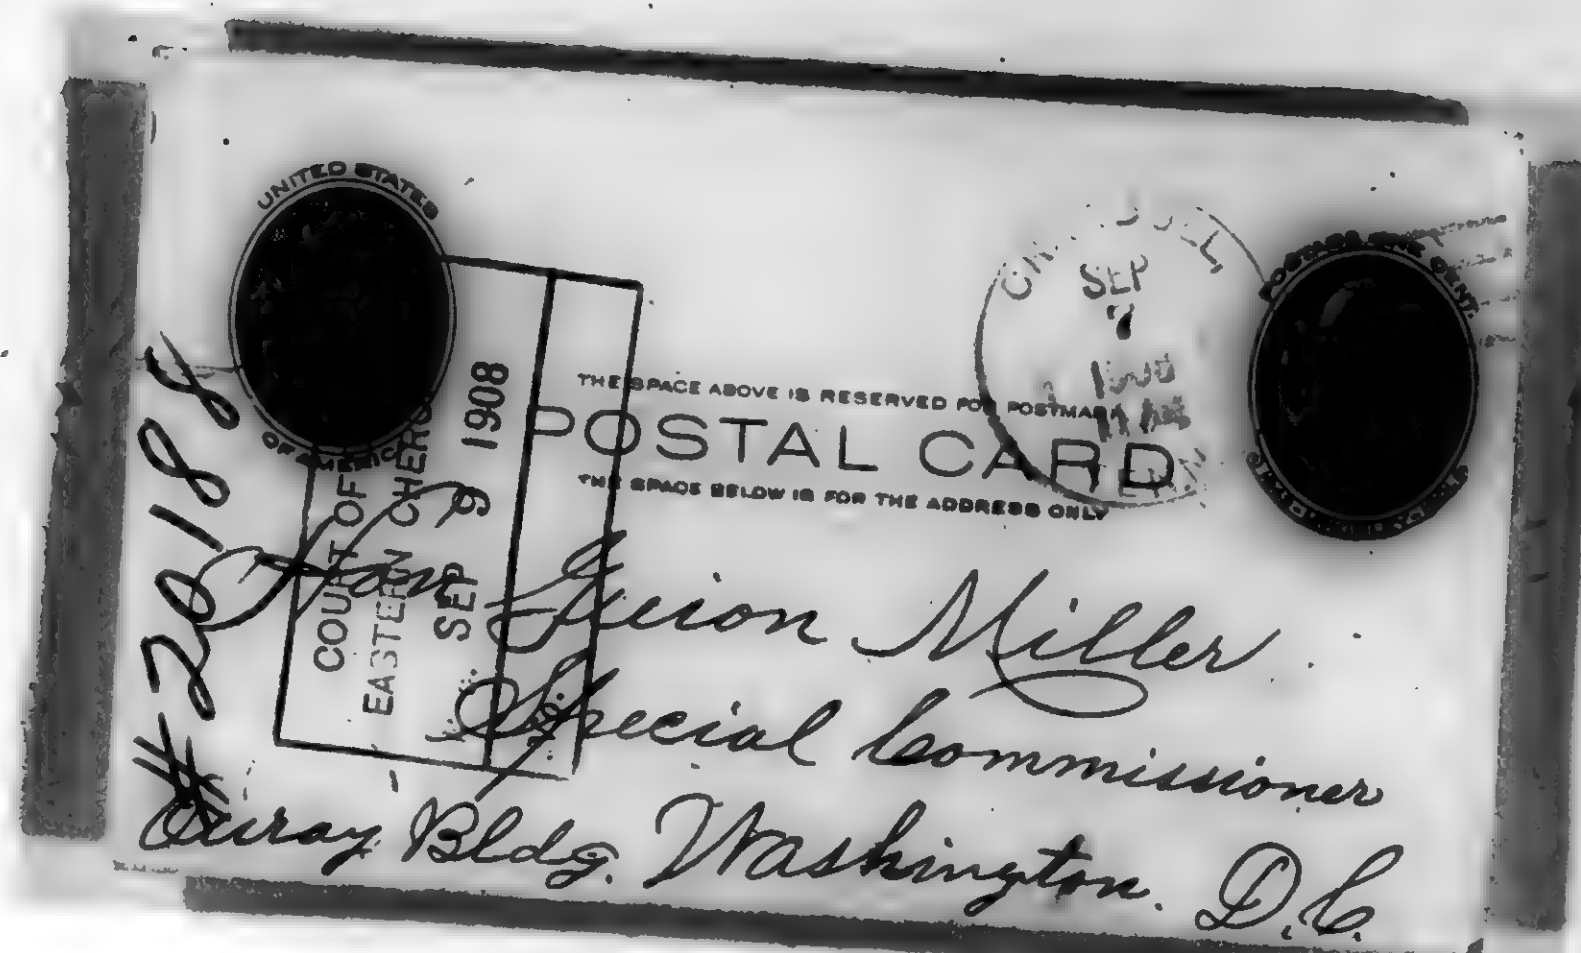 UNITED STATES
OF AMERICA
POSTAGE ONE CENT.
SEP
7
THE SPACE ABOVE IS RESERVED FOR POSTMARK
POSTAL CARD
THE SPACE BELOW IS FOR THE ADDRESS ONLY
COURT OF
EASTERN CHERO
SEP 9 1908
#20188
Hon Guion Miller
Special Commissioner
Ouray Bldg. Washington. D.C.